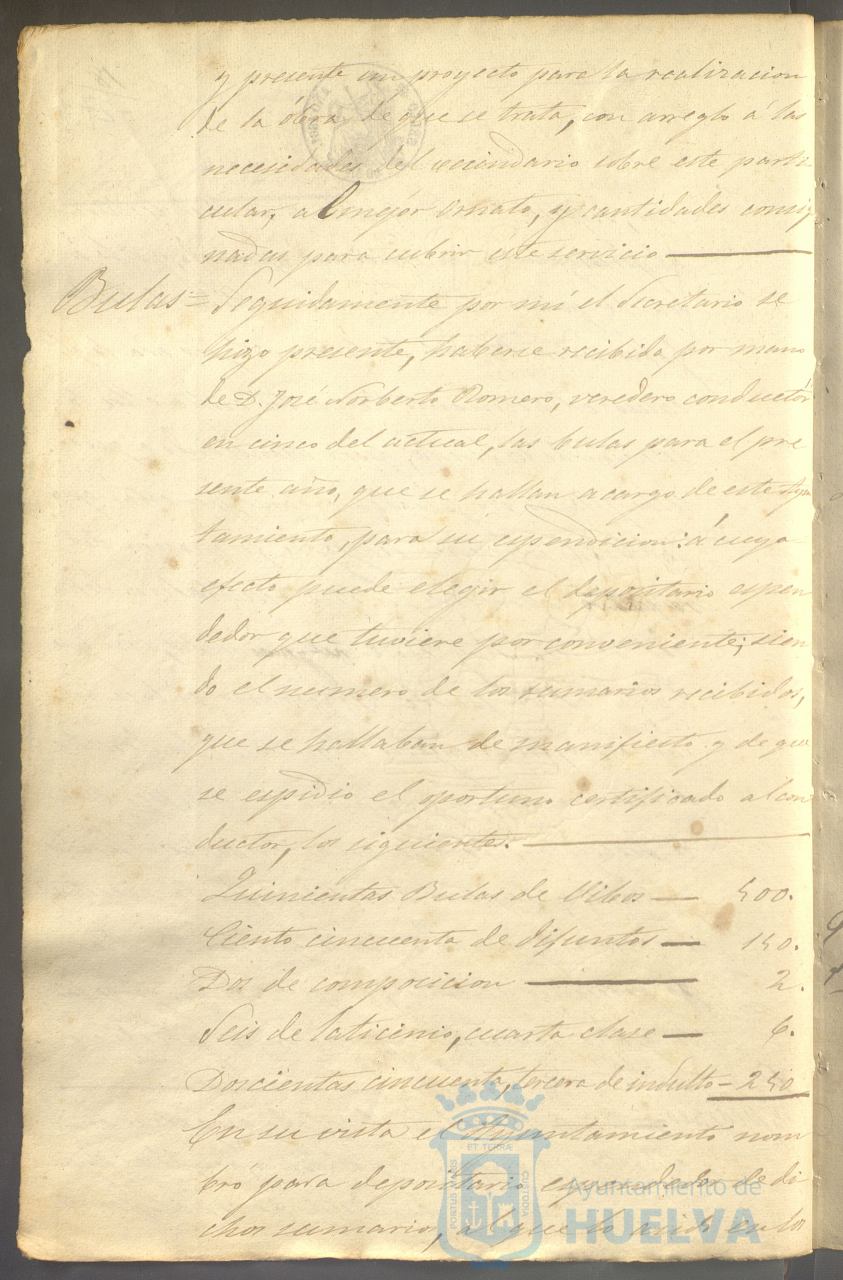 y presente un proyecto para la realizacion
de la óbra de que se trata, con arreglo á las
necesidades del vecindario sobre este parti
cular, al mejor ornato, y cantidades consig
nadas para cubrir este servicio
Bulas = Seguidamente por mí el Secretario se
hizo presente, haberse recibido por mano
de D. José Norberto Romero, veredero conductór
en cinco del actual, las bulas para el pre
sente año, que se hallan a cargo de este Ayun
tamiento, para su espendicion: á cuyo
efecto puede elegir el depositario espen
dedor que tuviere por conveniente; sien
do el numero de los sumarios recibidos,
que se hallaban de manifiesto y de que
se espidio el oportuno certificado al con
ductor, los siguientes.
Quinientas Bulas de Vibos — 500.
Ciento cincuenta de difuntos — 150.
Dos de composicion — 2.
Seis de laticinio, cuarta clase — 6.
Doscientas cincuenta, tercera de indulto = 250
En su vista el Ayuntamiento nom
bro para depositario espendedor de di
chos sumarios, al que lo
ET TERRÆ
PORTUS MARIS
CUSTODIA
Ayuntamiento de
HUELVA